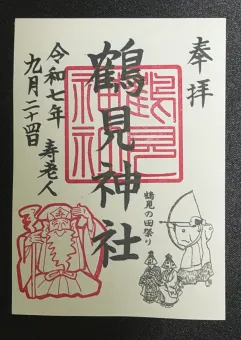 奉拝
鶴見神社
鶴見神社
鶴見の田祭り
令和七年
九月二十四日
寿老人